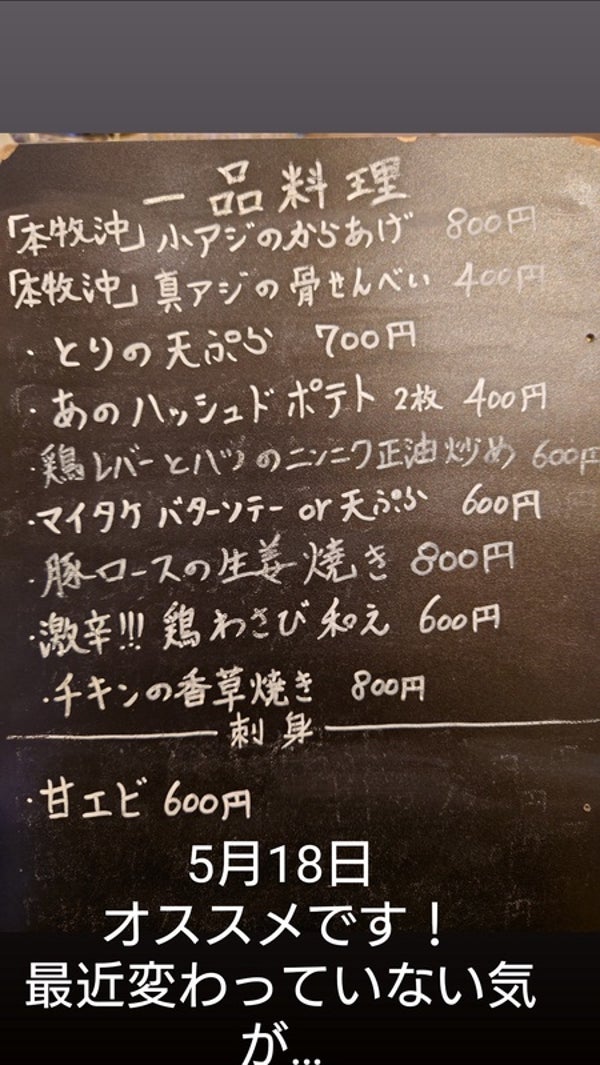 一品料理
「本牧沖」小アジのからあげ 800円
「本牧沖」真アジの骨せんべい 400円
・とりの天ぷら 700円
・あのハッシュドポテト 2枚 400円
・鶏レバーとハツのニンニク正油炒め 600円
・マイタケ バターソテー or 天ぷら 600円
・豚ロースの生姜焼き 800円
・激辛!!! 鶏わさび和え 600円
・チキンの香草焼き 800円
刺身
・甘エビ 600円
5月18日
オススメです！
最近変わっていない気
が…